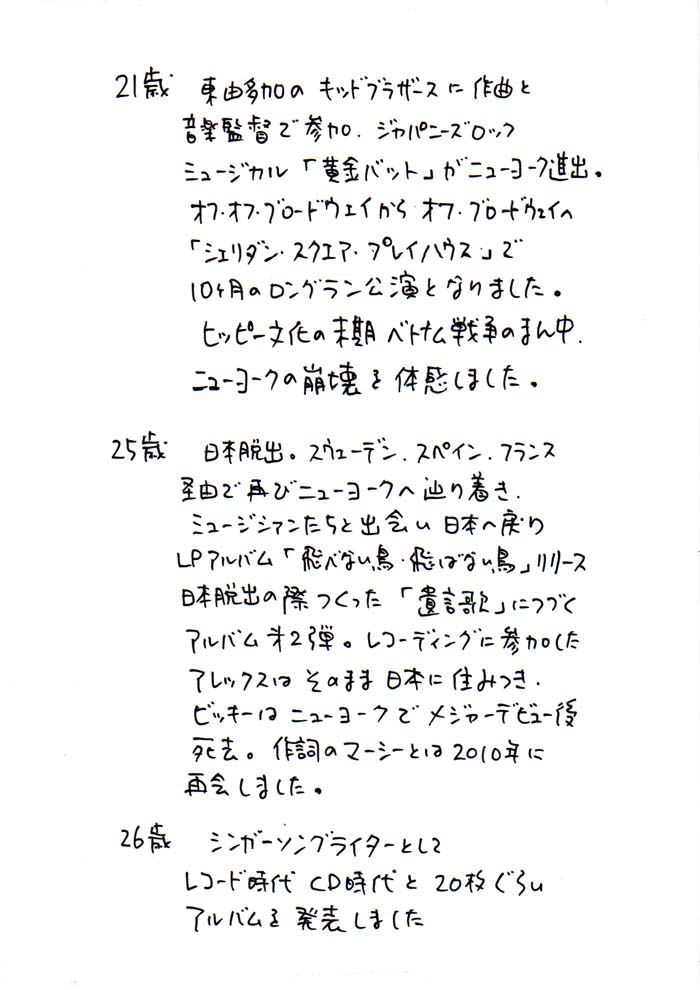 21歳 東由多加の キッドブラザースに 作曲と
音楽監督で参加. ジャパニーズロック
ミュージカル「黄金バット」がニューヨーク進出。
オフ・オフ・ブロードウェイから オフ・ブロードウェイへ
「シェリダン・スクエア・プレイハウス」で
10ヶ月のロングラン公演となりました。
ヒッピー文化の末期 ベトナム戦争のまん中.
ニューヨークの崩壊を体感しました。
25歳 日本脱出。スウェーデン.スペイン.フランス
経由で再びニューヨークへ辿り着き.
ミュージシァンたちと出会い日本へ戻り
LPアルバム「飛べない鳥・飛ばない鳥」リリース
日本脱出の際つくった「遺言歌」につづく
アルバム才2弾。レコーディングに参加した
アレックスは そのまま日本に住みつき.
ビッキーは ニューヨークで メジャーデビュー後
死去。作詞のマーシーとは2010年に
再会しました。
26歳 シンガーソングライターとして
レコード時代 CD時代と 20枚ぐらい
アルバムを発表しました